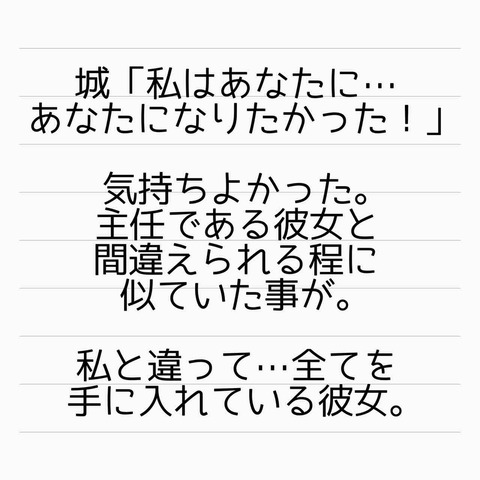 城「私はあなたに…
あなたになりたかった！」
気持ちよかった。
主任である彼女と
間違えられる程に
似ていた事が。
私と違って…全てを
手に入れている彼女。